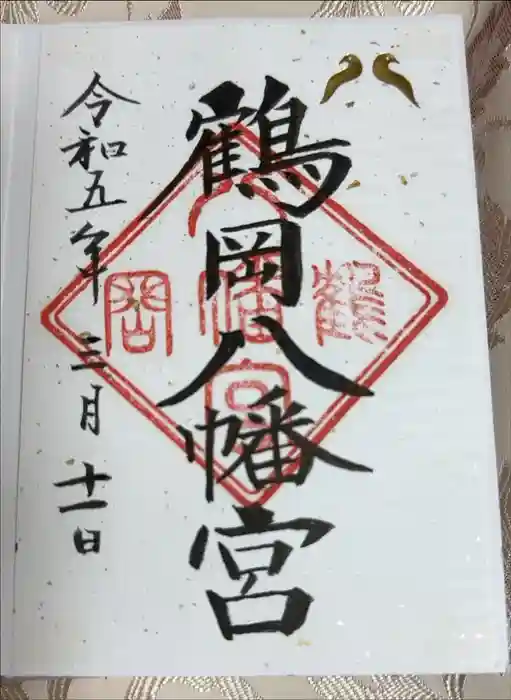 鶴岡八幡宮
令和五年 三月十一日
鶴岡八幡宮